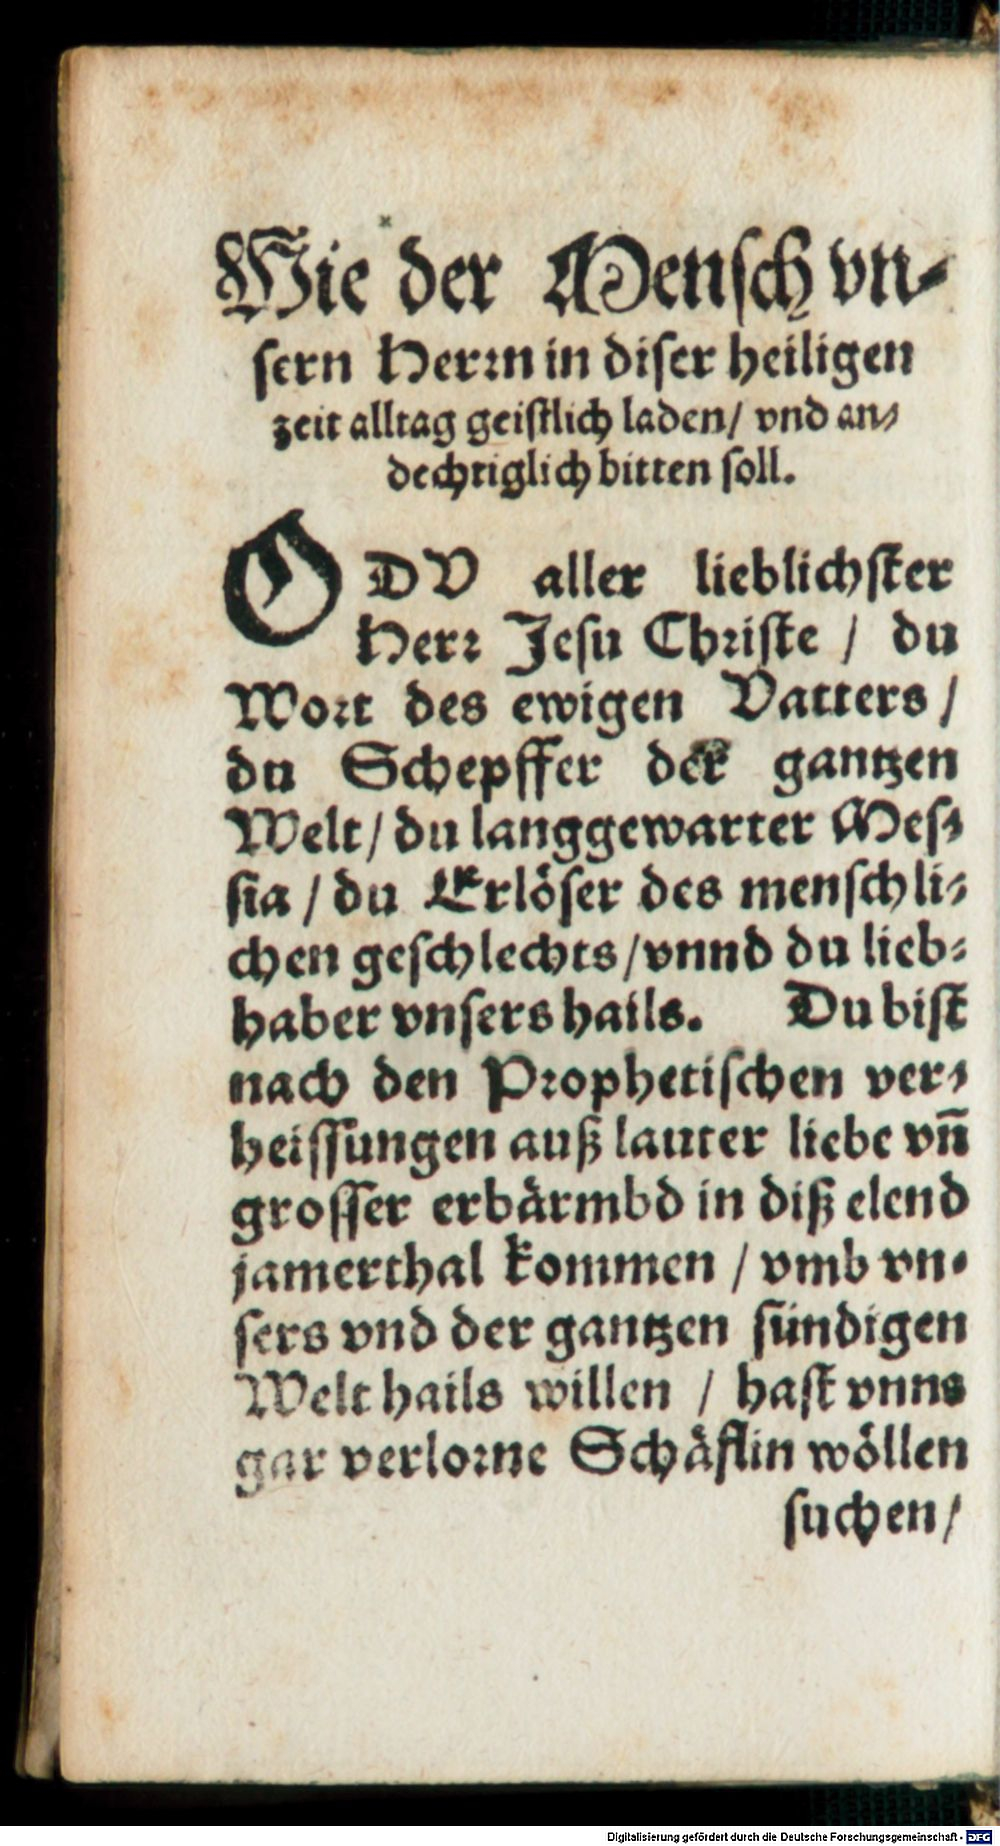 Wie der Mensch vn-
sern Herrn in diser heiligen
zeit alltag geistlich laden/ vnd an-
dechtiglich bitten soll.
O DV aller lieblichster
Herr Jesu Christe / du
Wort des ewigen Vatters /
du Schepffer der gantzen
Welt/ du langgewarter Mes-
sia / du Erlöser des menschli-
chen geschlechts/ vnnd du lieb-
haber vnsers hails. Du bist
nach den Prophetischen ver-
heissungen auß lauter liebe vn̄
grosser erbärmbd in diß elend
jamerthal kommen / vmb vn-
sers vnd der gantzen sündigen
Welt hails willen / hast vnns
gar verlorne Schäflin wöllen
suchen/
Digitalisierung gefördert durch die Deutsche Forschungsgemeinschaft - DFG